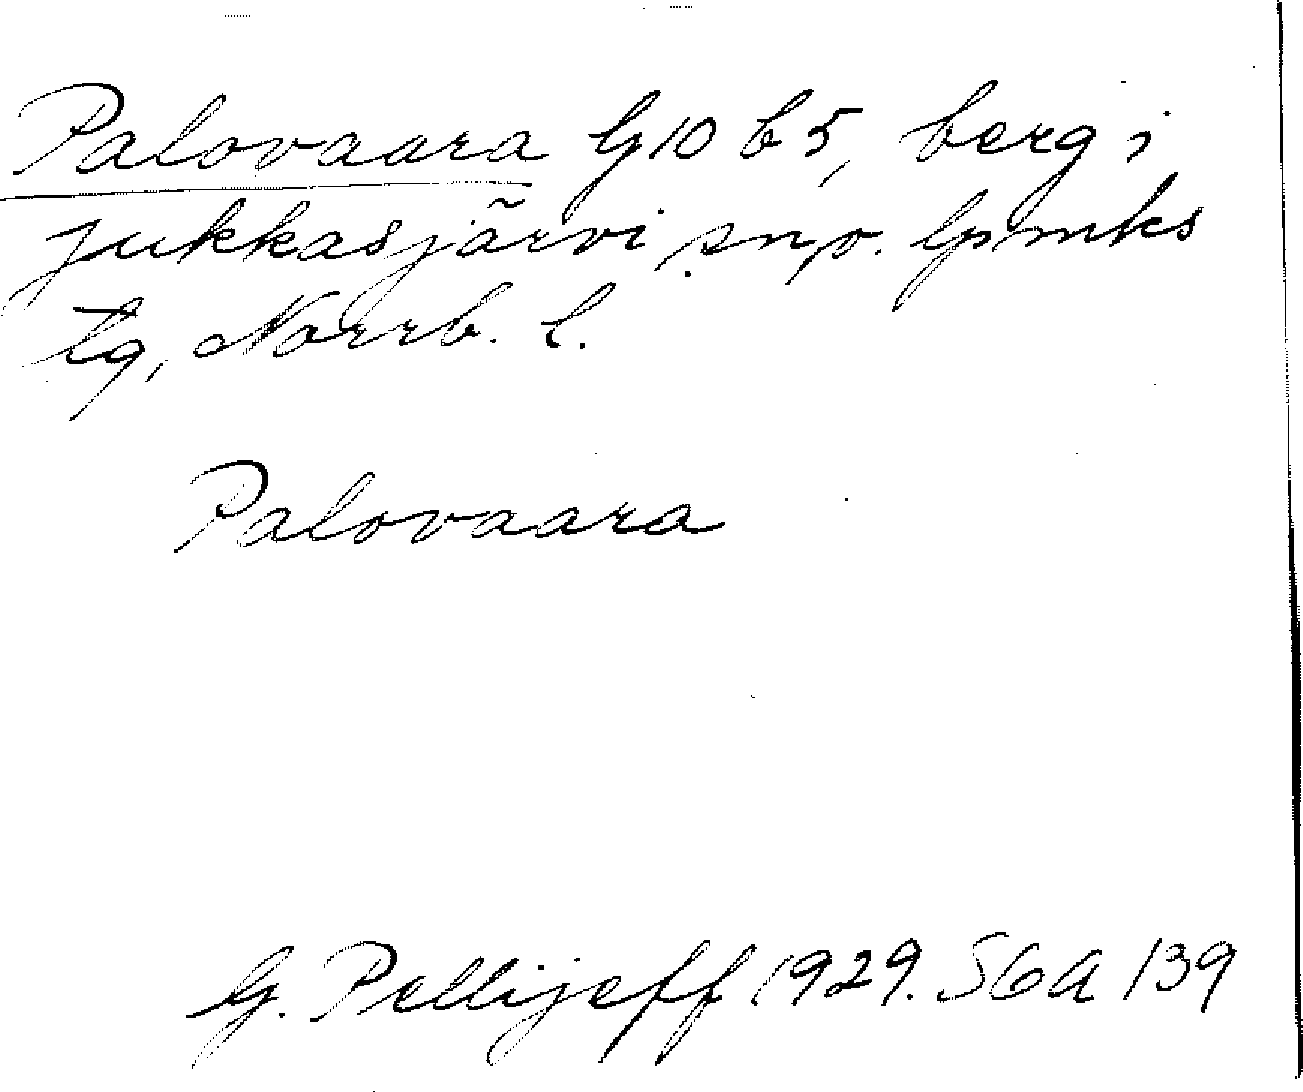 Palovaara G10 b5, berg i
Jukkasjärvi snp. Lpmks
tg, Norrb. l.
Palovaara
G. Pellijeff 1929. SGA 139